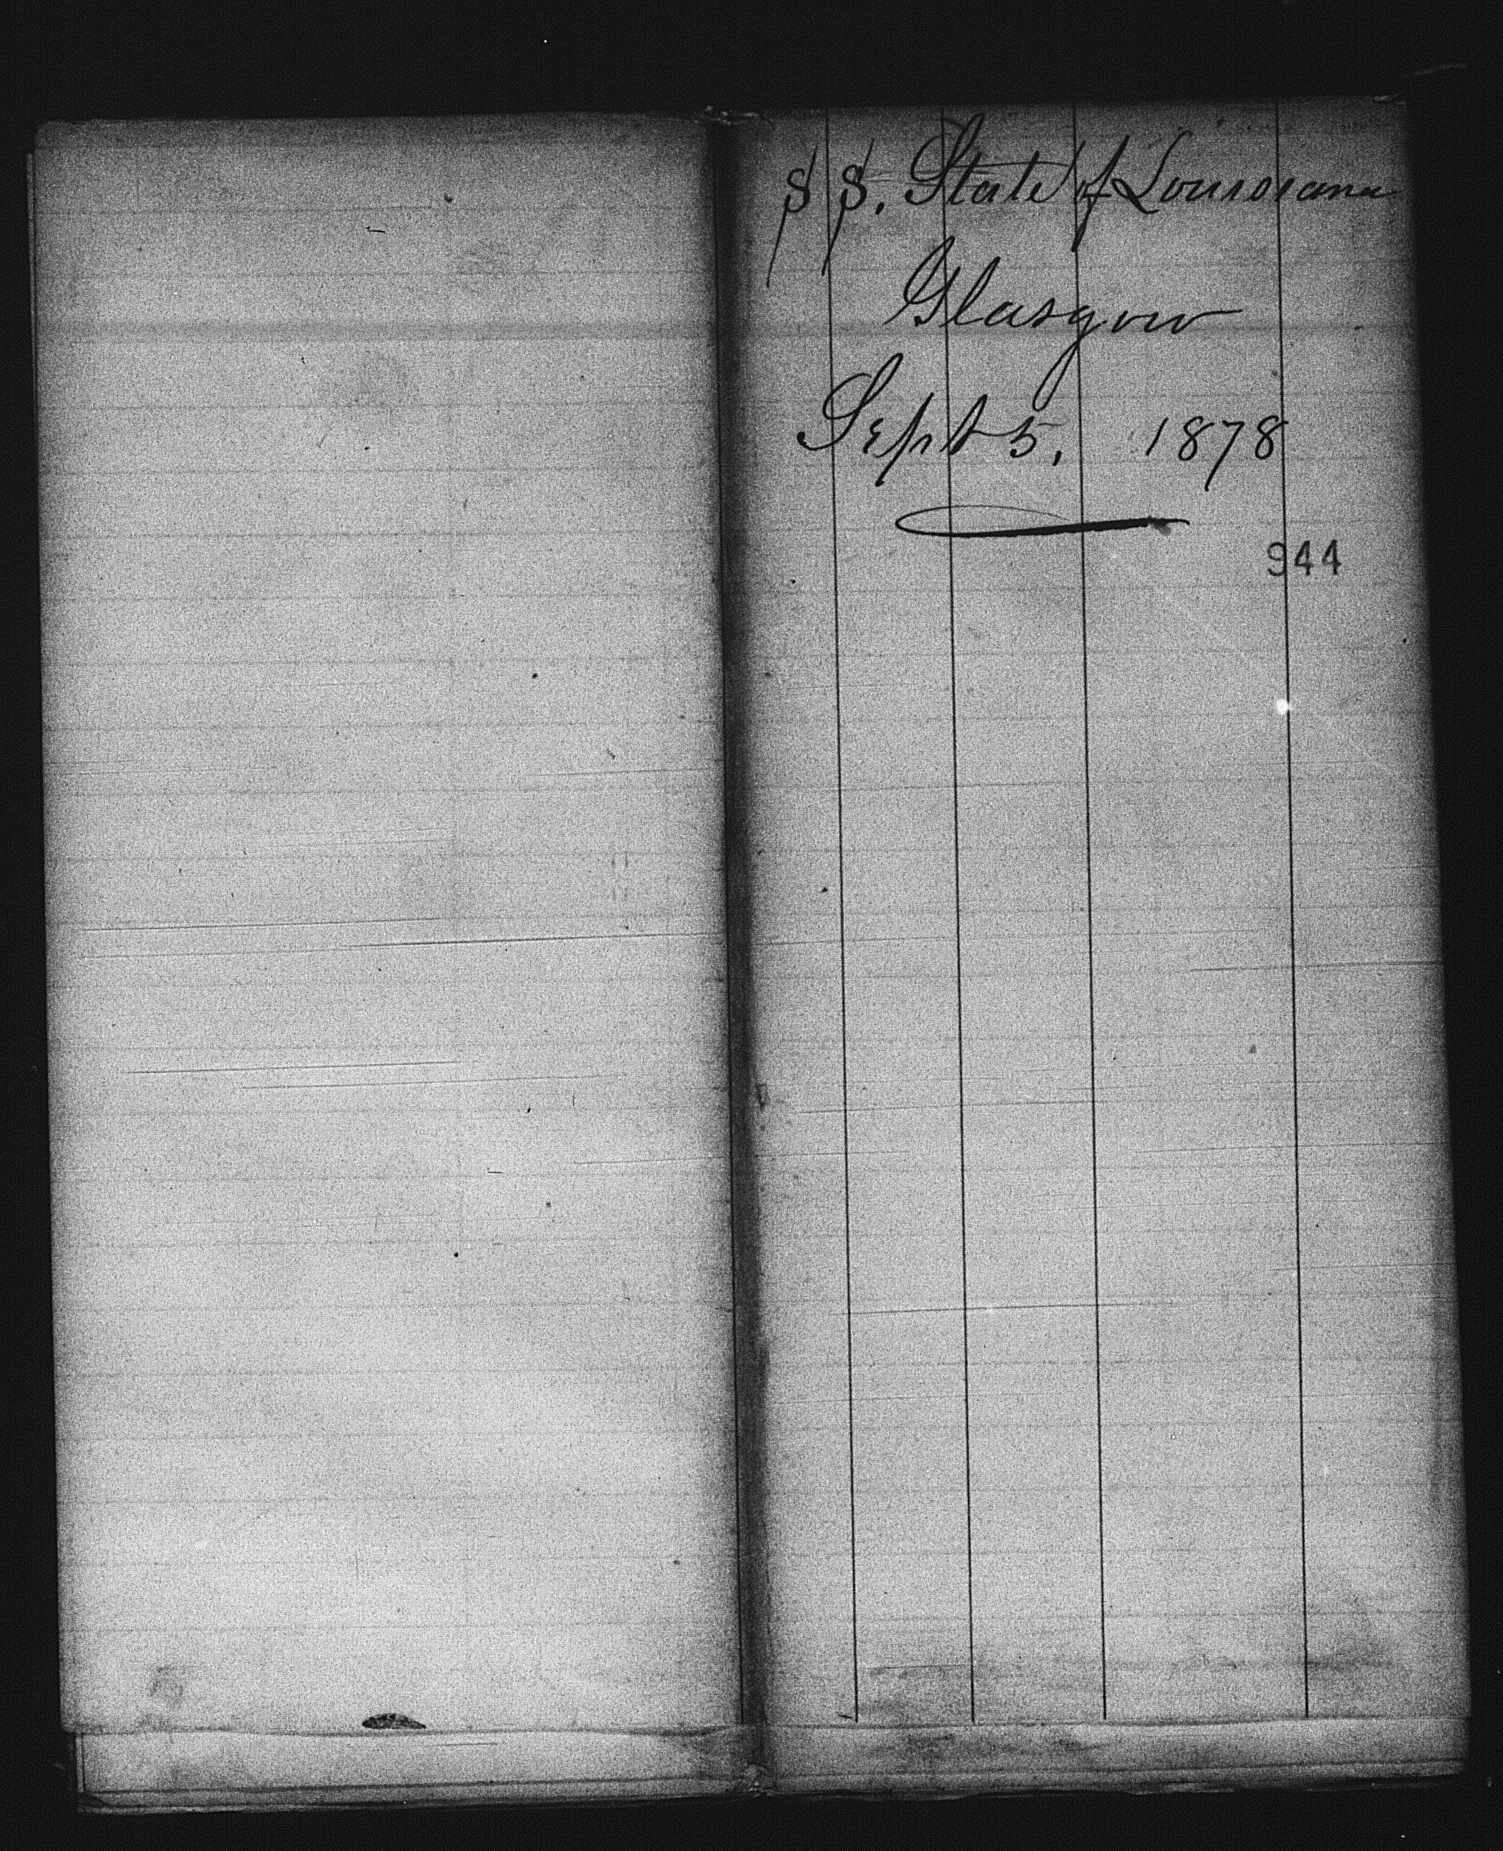 S S. State of Louisiana
Glasgow
Sept 5, 1878
944